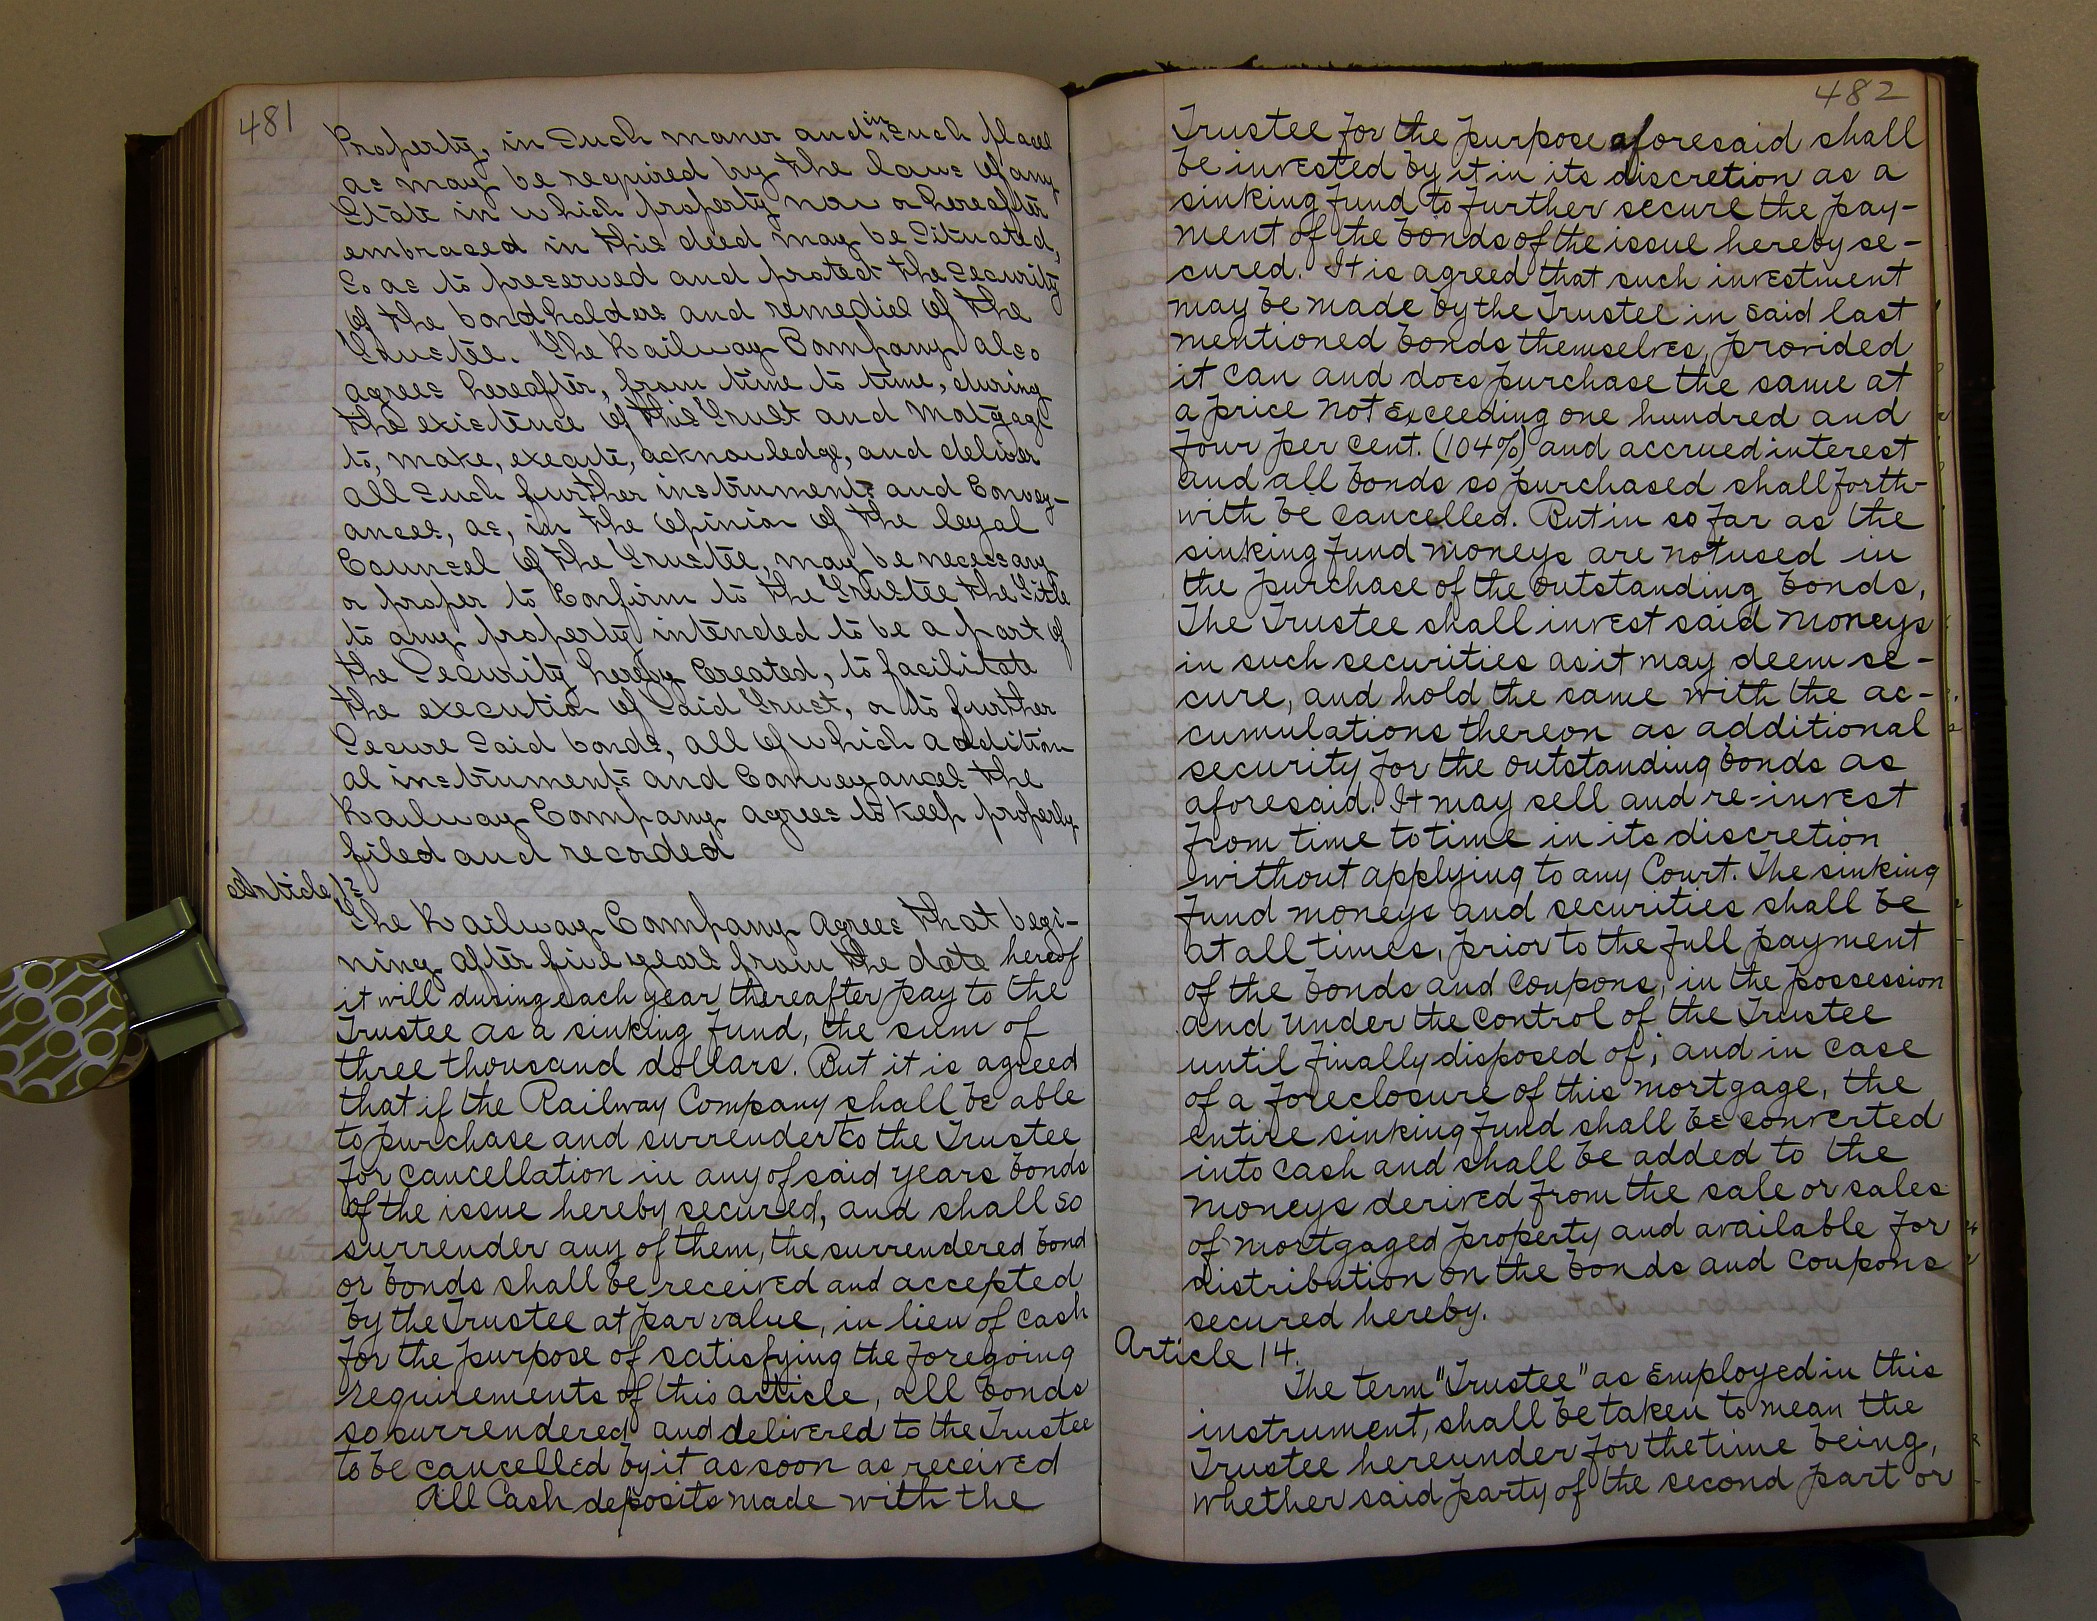 481
Property, in Such maner and in Such places
as may be required by the laws of any
State in which property now or hereafter
embraced in this deed may be Situated,
So as to preserved and protect the Security
of the bondholders and remedies of the
Trustee. The Railway Company also
agrees hereafter, from time to time, during
the existence of this Trust and Motgage
to, make, execute, acknowledge, and deliver
all Such further instruments and Convey-
ances, as, in the opinion of the legal
Counsel of the Trustee, may be necessary
or proper to Confirm to the Trustee the Title
to any property intended to be a part of
the Security hereby Created, to facilitate
the execution of Said Trust, or to further
Secure Said bonds, all of which addition
al instruments and Conveyances the
Railway Company agrees to keep properly
filed and recorded
Article 13
The Railway Company agrees that begi-
ning after five years from the date hereof
it will during each year thereafter pay to the
Trustee as a sinking fund, the sum of
three thousand dollars. But it is agreed
that if the Railway Company shall be able
to purchase and surrender to the Trustee
for cancellation in any of said years bonds
of the issue hereby secured, and shall so
surrender any of them, the surrendered bond
or bonds shall be received and accepted
by the Trustee at par value, in lieu of cash
for the purpose of satisfying the foregoing
requirements of this article, all bonds
so surrendered and delivered to the Trustee
to be cancelled by it as soon as received
All Cash deposits made with the
482
Trustee for the purpose aforesaid shall
be invested by it in its discretion as a
sinking fund to further secure the pay-
ment of the bonds of the issue hereby se-
cured. It is agreed that such investment
may be made by the Trustee in said last
mentioned bonds themselves, provided
it can and does purchase the same at
a price not exceeding one hundred and
four per cent. (104%) and accrued interest
and all bonds so purchased shall forth-
with be cancelled. But in so far as the
sinking fund moneys are not used in
the purchase of the outstanding bonds,
The Trustee shall invest said moneys
in such securities as it may deem se-
cure, and hold the same with the ac-
cumulations thereon as additional
security for the outstanding bonds as
aforesaid. It may sell and re-invest
from time to time in its discretion
without applying to any Court. The sinking
fund moneys and securities shall be
at all times, prior to the full payment
of the bonds and coupons, in the possession
and under the control of the Trustee
until finally disposed of; and in case
of a foreclosure of this mortgage, the
entire sinking fund shall be converted
into cash and shall be added to the
moneys derived from the sale or sales
of mortgaged property and available for
distribution on the bonds and coupons
secured hereby.
Article 14.
The term "Trustee" as employed in this
instrument, shall be taken to mean the
Trustee hereunder for the time being,
whether said party of the second part or